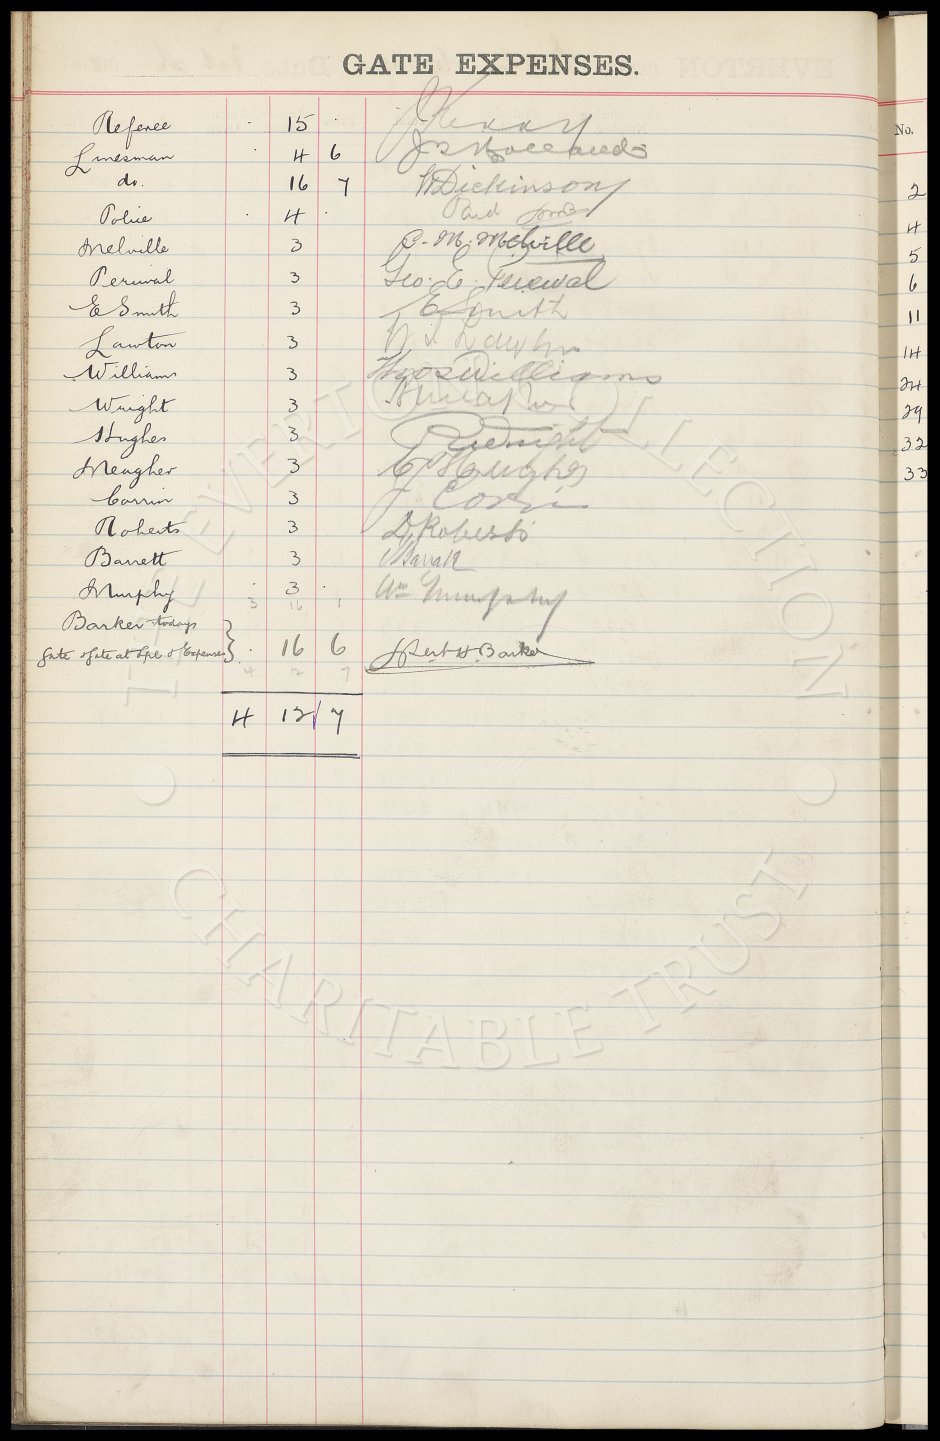 GATE EXPENSES.
No.
Referee 15
Linesman 4 6
do. 16 7 W Dickinson 2
Police 4 Paid 4
Melville 3 C. M. Melville 5
Percival 3 Geo. E. Percival 6
E Smith 3 E Smith 11
Lawton 3 Lawton 14
Williams 3 Williams 24
Wright 3 29
Hughes 3 R Wright 32
Meagher 3 Hughes 33
Corrin 3 J Corrin
Roberts 3 D Roberts
Barrett 3 Barrett
Murphy 3 Wm Murphy
3 16 1
Barker todays
gate & gate at Lpl. & Expenses 16 6 Herbt H. Barker
4 12 7
4 12 7
THE EVERTON COLLECTION
CHARITABLE TRUST